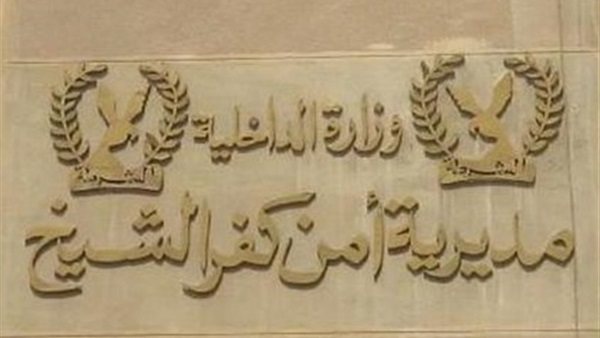 وزارة الداخلية
الشرطة
الشرطة
مديرية أمن كفر الشيخ